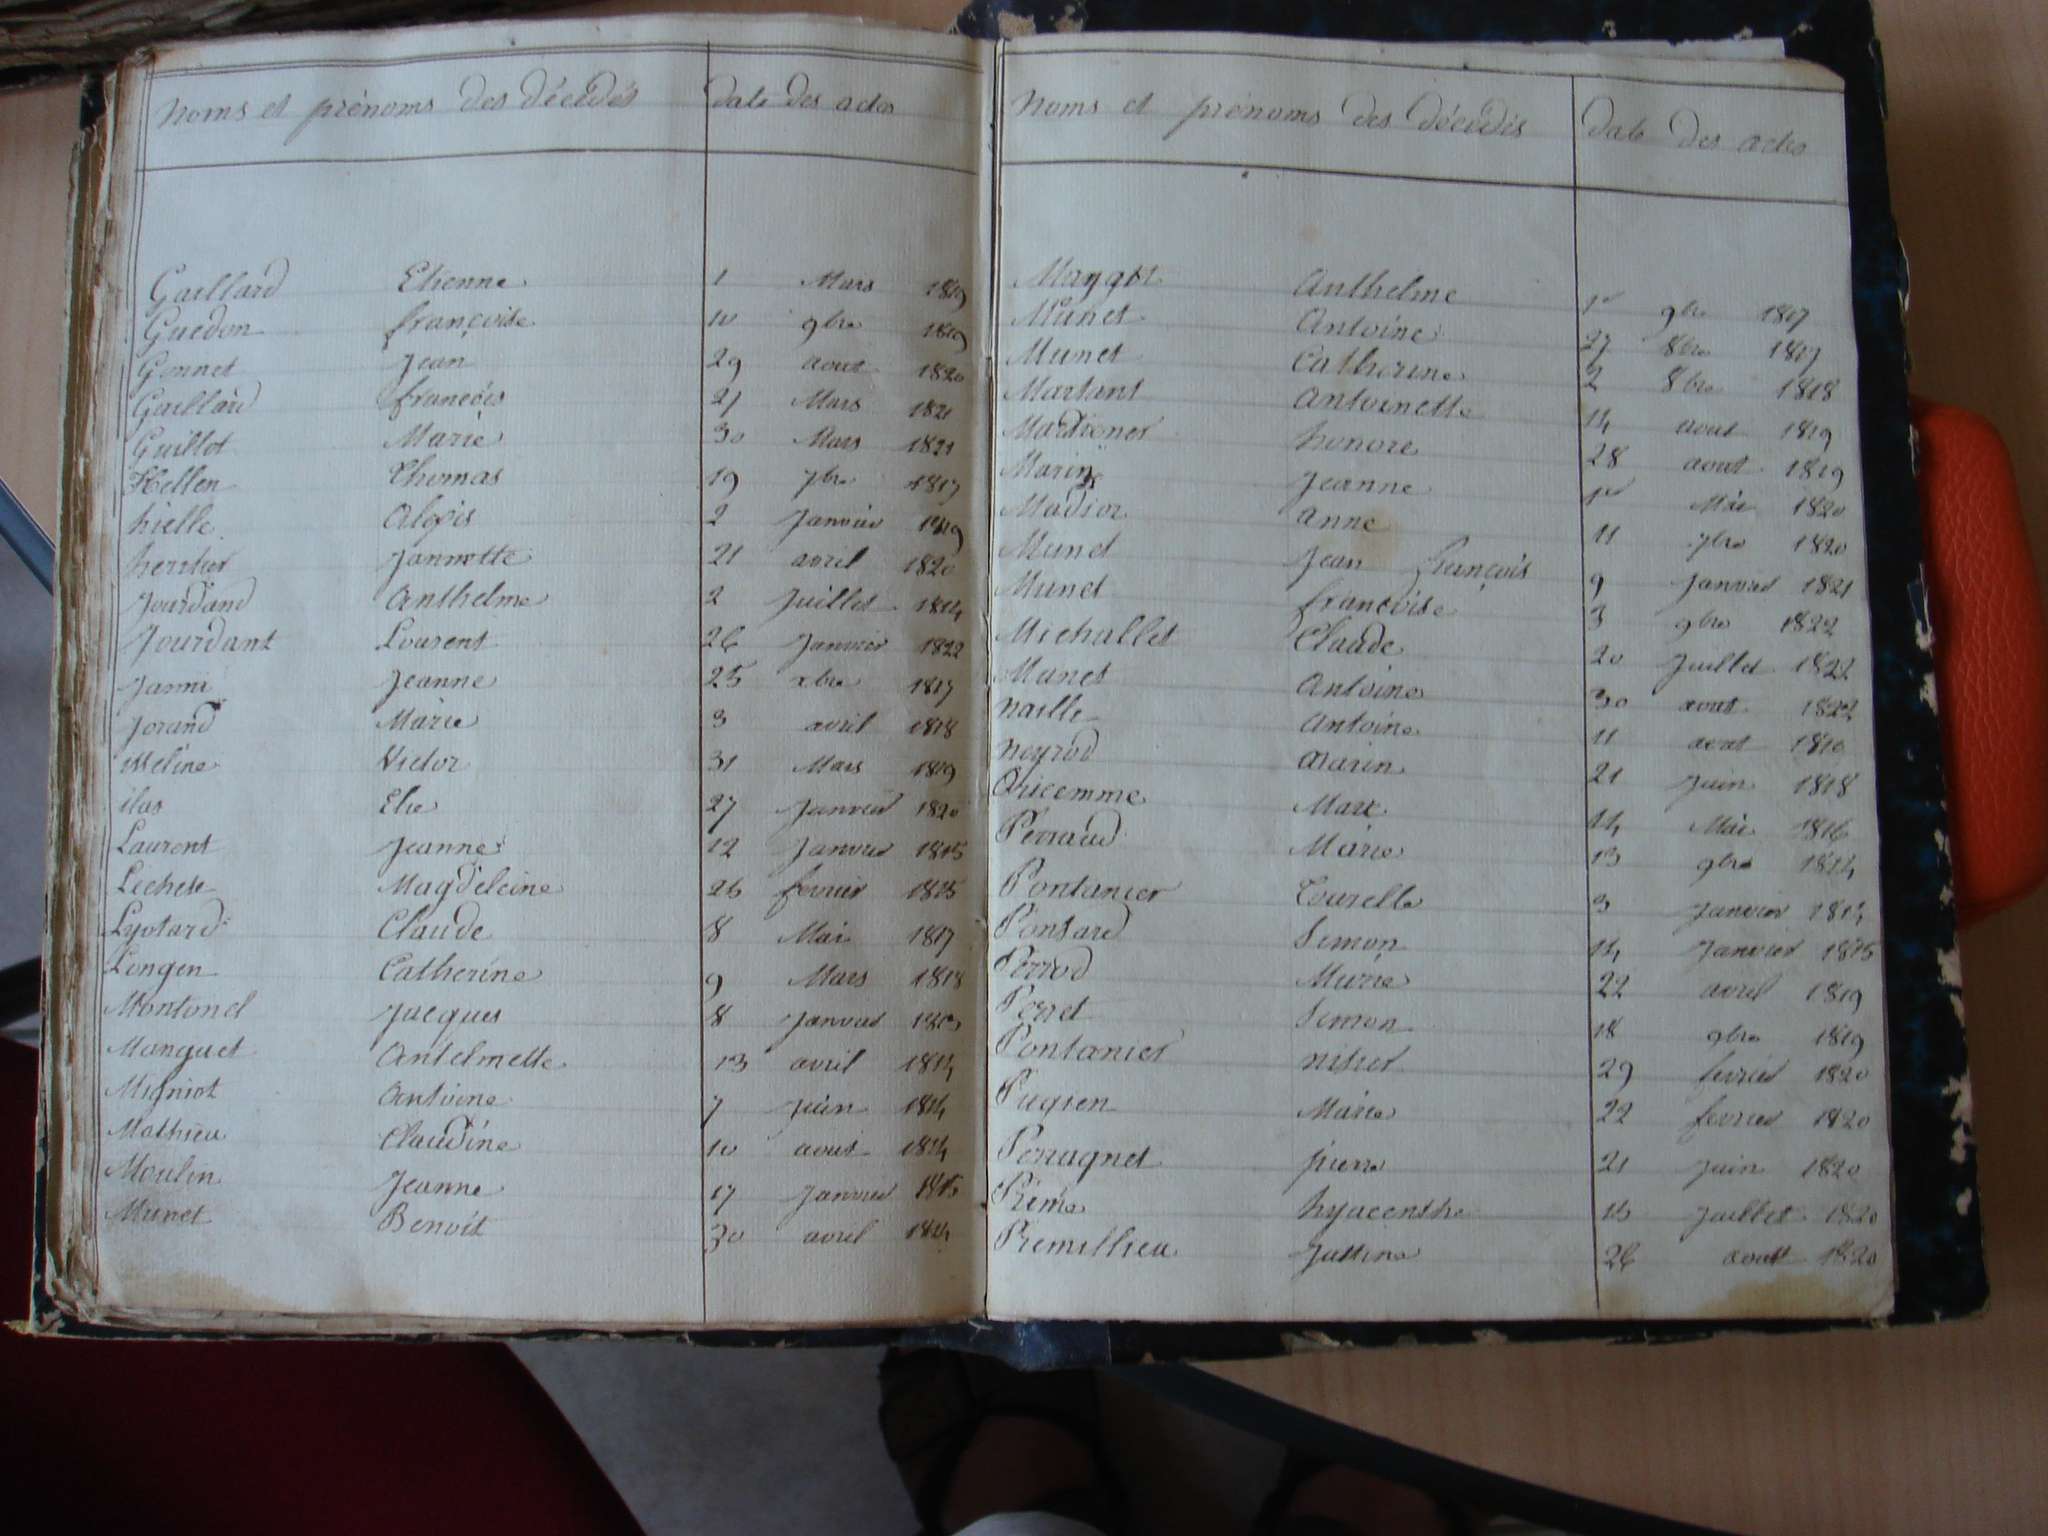 Noms et prénoms des décédés Date des actes
Gaillard Etienne 1 Mars 1819
Guedon françoise 10 9bre 1819
Gonnet Jean 29 aout 1820
Gaillard françois 21 Mars 1821
Guillot Marie 30 Mars 1821
Hellen Thomas 19 7bre 1817
hielle Aloïs 2 Janvier 1819
heritier Jannette 21 avril 1820
Jourdand Anthelme 2 Juillet 1814
Jourdant Laurent 26 Janvier 1822
Janni Jeanne 25 xbre 1817
Jorand Marie 3 avril 1818
isseline Victor 31 Mars 1819
ilas Elie 27 Janvier 1820
Laurent Jeanne 12 Janvier 1815
Lechete Magdeleine 26 fevrier 1815
Lyotard Claude 8 Mai 1817
Longen Catherine 9 Mars 1818
Montonel Jacques 8 Janvier 1813
Manguet Antelmette 13 avril 1814
Migniot Antoine 7 Juin 1814
Mathieu Claudine 10 aout 1814
Moulin Jeanne 17 Janvier 1815
Munet Benoit 30 avril
Noms et prénoms des décédés Date des actes
Mangot Anthelme 1er 9bre 1817
Munet Antoine 27 8bre 1817
Munet Catherine 2 8bre 1818
Martant Antoinette 14 aout 1819
Mardioner honore 28 aout 1819
Marin Jeanne 1er Mai 1820
Madior anne 11 7bre 1820
Munet Jean François 9 Janvier 1821
Munet françoise 3 9bre 1822
Michallet Claude 20 Juillet 1822
Munet Antoine 30 aout 1822
naille Antoine 11 aout
neyrod Marin 21 Juin 1818
Marc 14 Mai 1816
Perraud Marie 13 9bre 1814
Pontanier Tourelle 3 Janvier 1814
Ponsard Simon 14 Janvier 1815
Perrod Marie 22 avril 1819
Perret Simon 18 9bre 1819
Pontanier 29 fevrier 1820
Pugien Marie 22 fevrier 1820
Perragnet pierre 21 Juin 1820
Rême hyacenthe 13 Juillet 1820
Remillieu Justine 26 aoust 1820